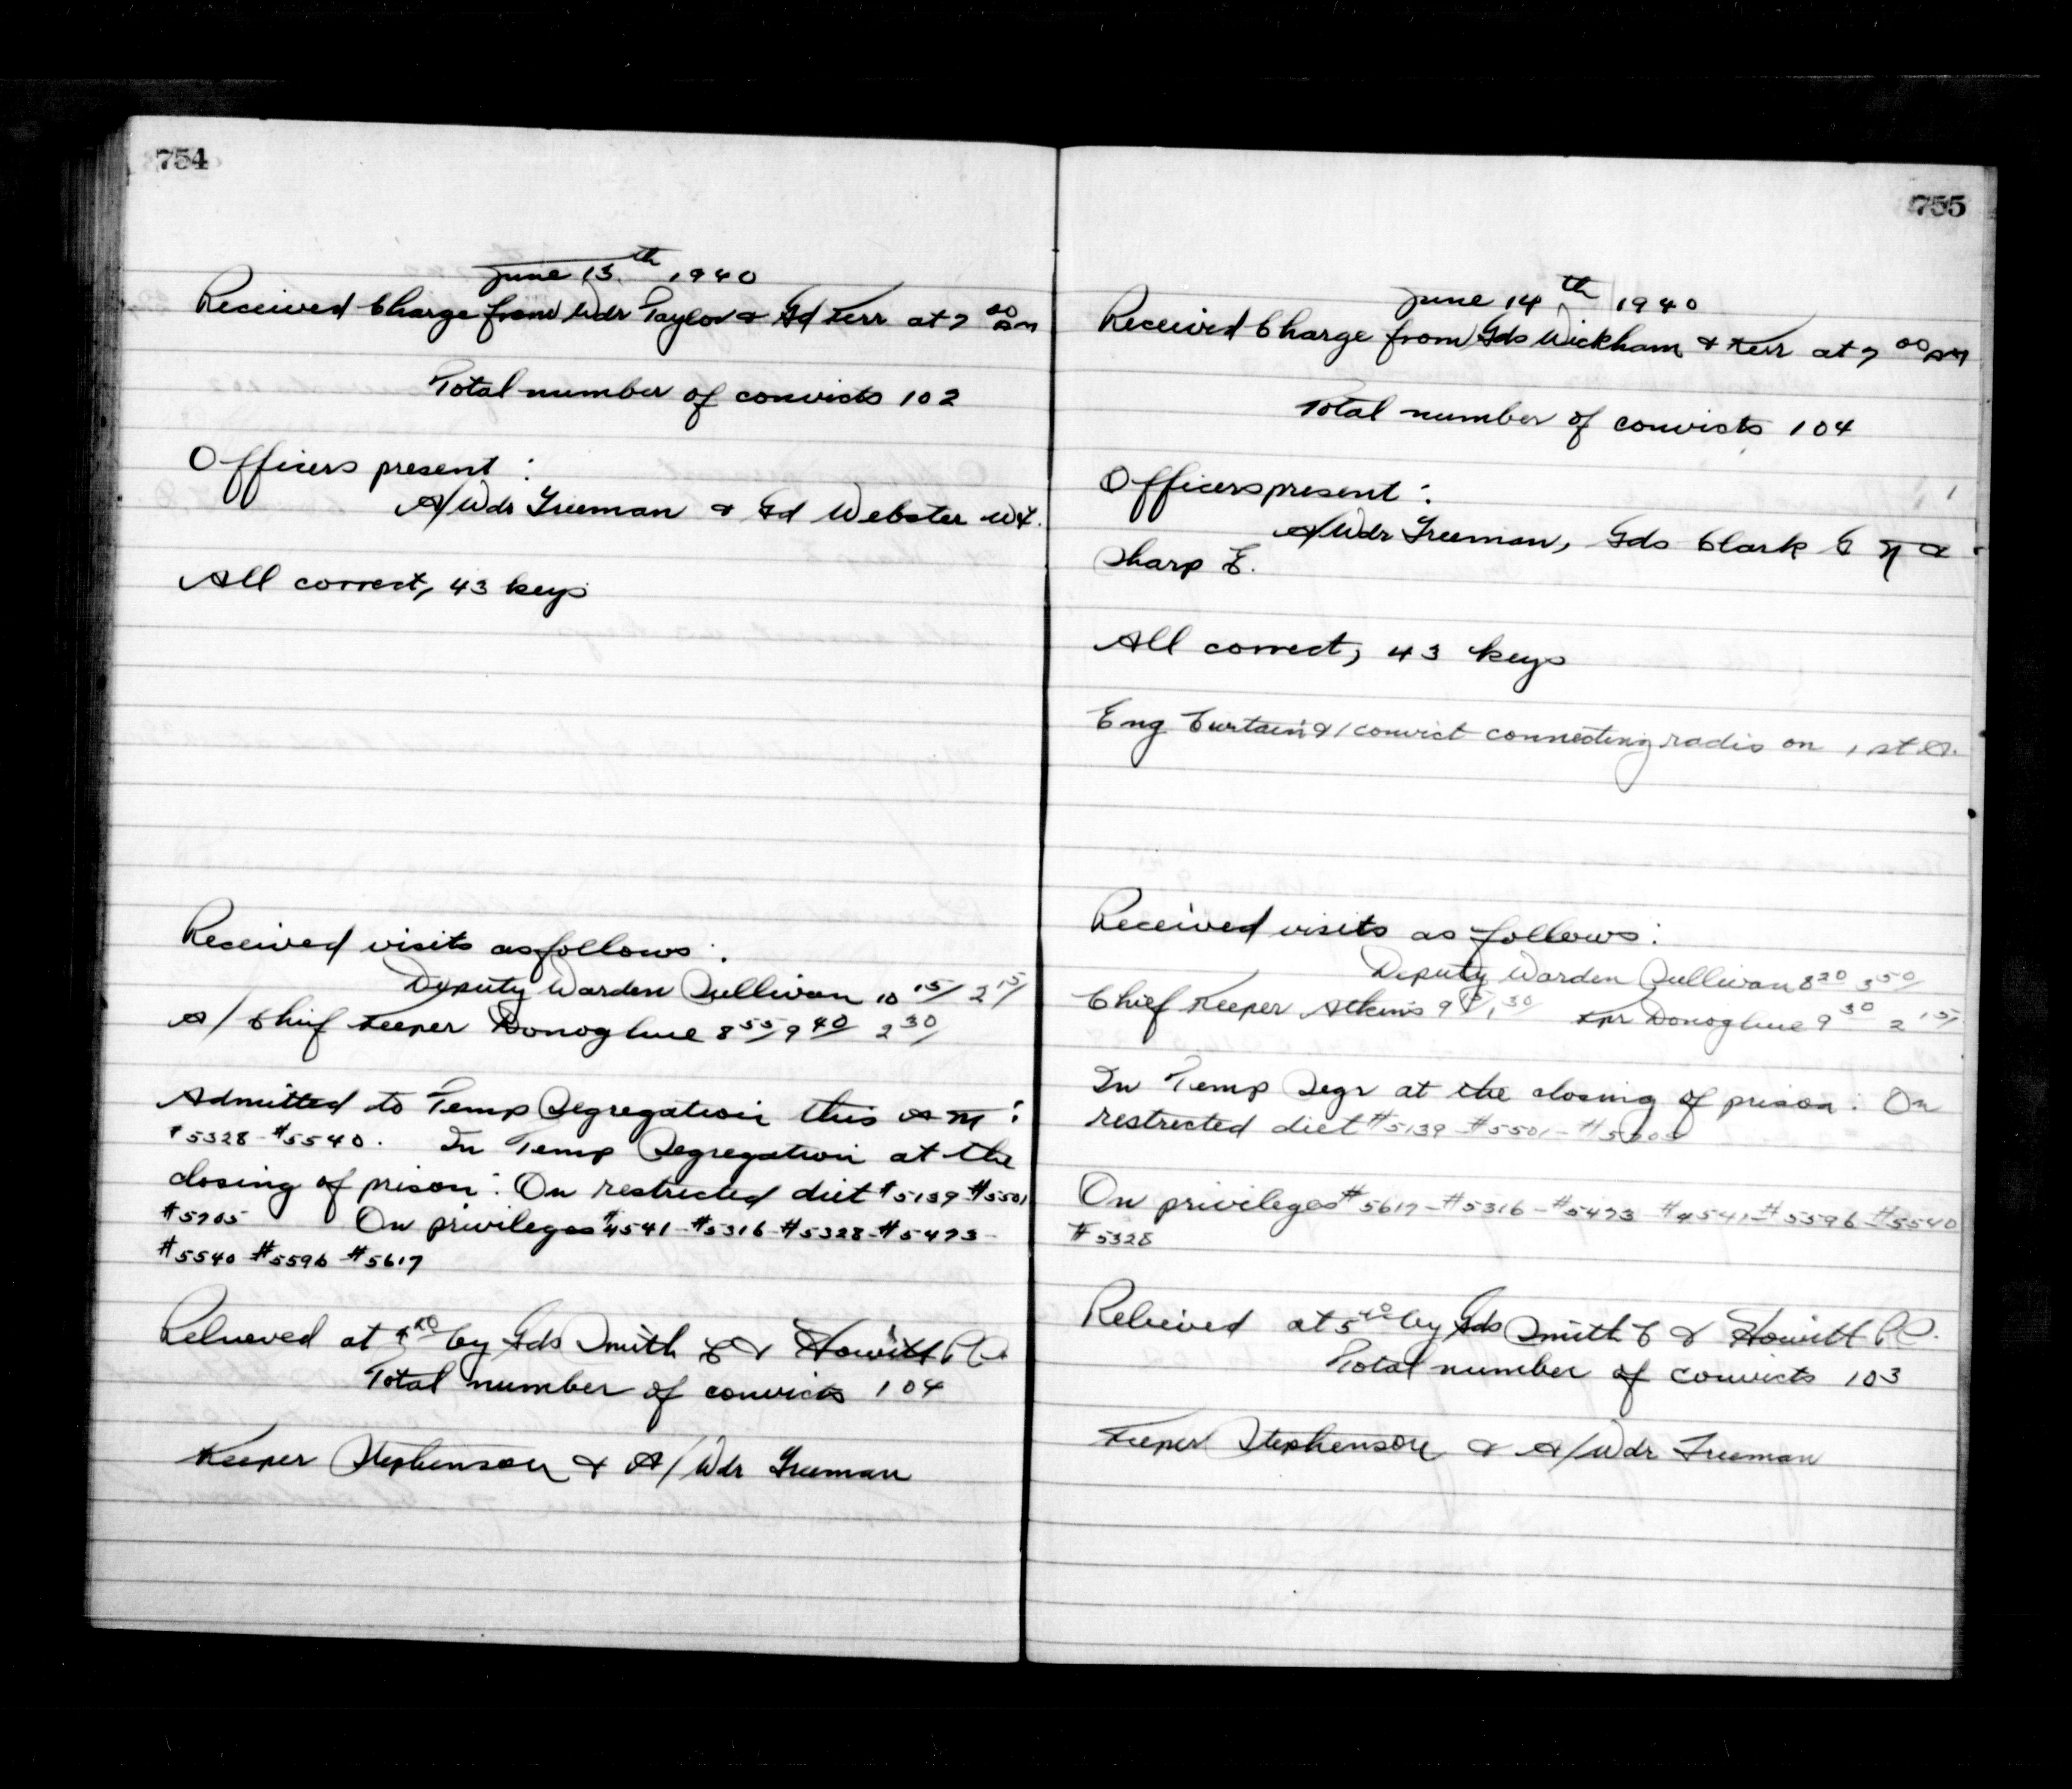 754
June 13th 1940
Received Charge from Wdr Taylor & Gd Kerr at 7 00 AM
Total number of convicts 102
Officers present :
A/Wdr Freeman & Gd Webster
All correct, 43 keys
Received visits as follows :
Deputy Warden Sullivan 10 15/ 2 15/
A/ Chief Keeper Donoghue 8 55/ 9 40/ 2 30/
Admitted to Temp Segregation this AM :
#5328 - #5540. In Temp Segregation at the
closing of prison : On restricted diet #5139 - #5501
#5705 On privileges #4541 - #5316 - #5328 - #5473 -
#5540 - #5596 - #5617
Relieved at by Gds Smith C & Howitt
Total number of convicts 104
Keeper Stephenson & A/ Wdr Freeman
755
June 14th 1940
Received Charge from Gds Wickham & Kerr at 7 00 AM
Total number of convicts 104
Officers present :
A/Wdr Freeman, Gds Clark G &
Sharp E.
All correct, 43 keys
Eng Curtain & 1 convict connecting radio on 1 st
Received visits as follows :
Deputy Warden Sullivan 8 20 3 50/
Chief Keeper Atkins 9 1 30/ Kpr Donoghue 9 30 2 15/
In Temp Segr at the closing of prison : On
restricted diet #5139 - #5501 - #5705
On privileges #5617 - #5316 - #5473 #4541 - #5596 - #5540
#5328
Relieved at 5 40 by Gds Smith C & Howitt
Total number of convicts 103
Keeper Stephenson & A/Wdr Freeman